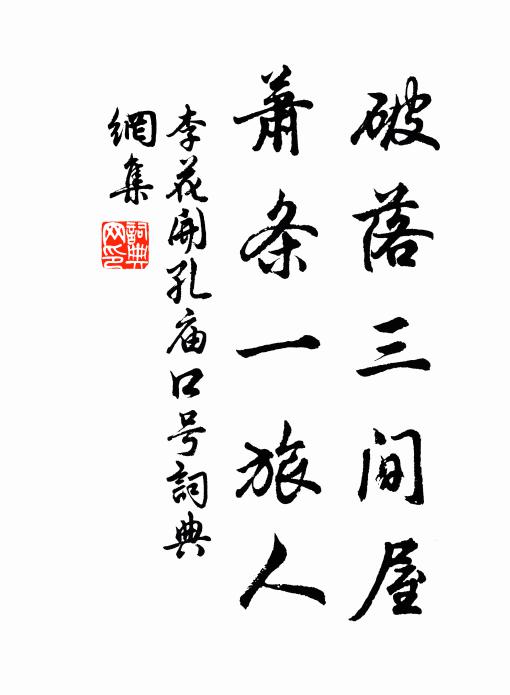 破落三间屋
萧条一旅人
李花開孔庙口号詞典
網集
詞典
网印